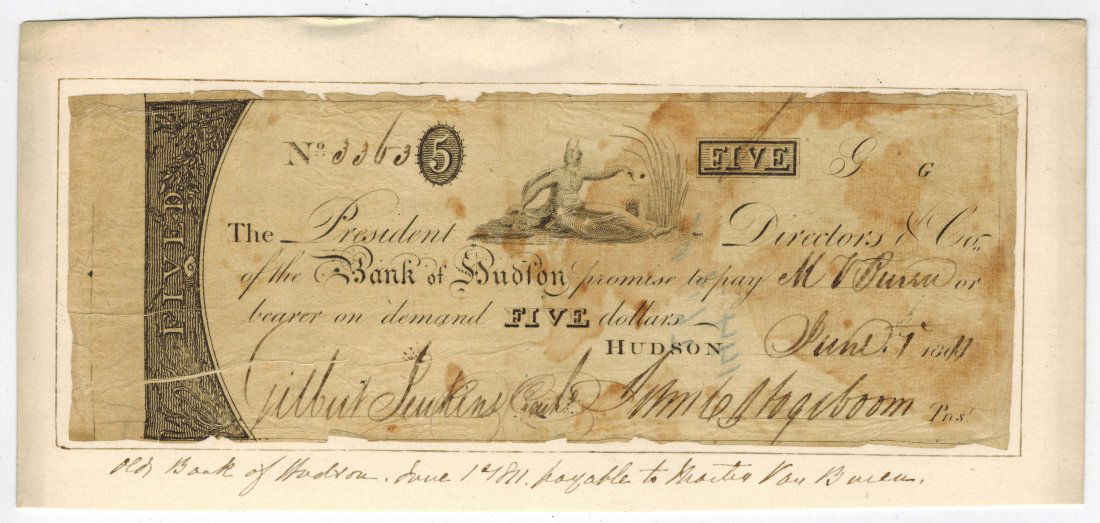 FIVE D
No. 3363 5 FIVE G G
The President Directors & Co.
of the Bank of Hudson promise to pay M V Buren or
bearer on demand FIVE dollars
HUDSON June 1 1811
Gilbert Jenkins Cash. Hogeboom Prest.
Old Bank of Hudson. June 1st 1811. payable to Martin Van Buren.